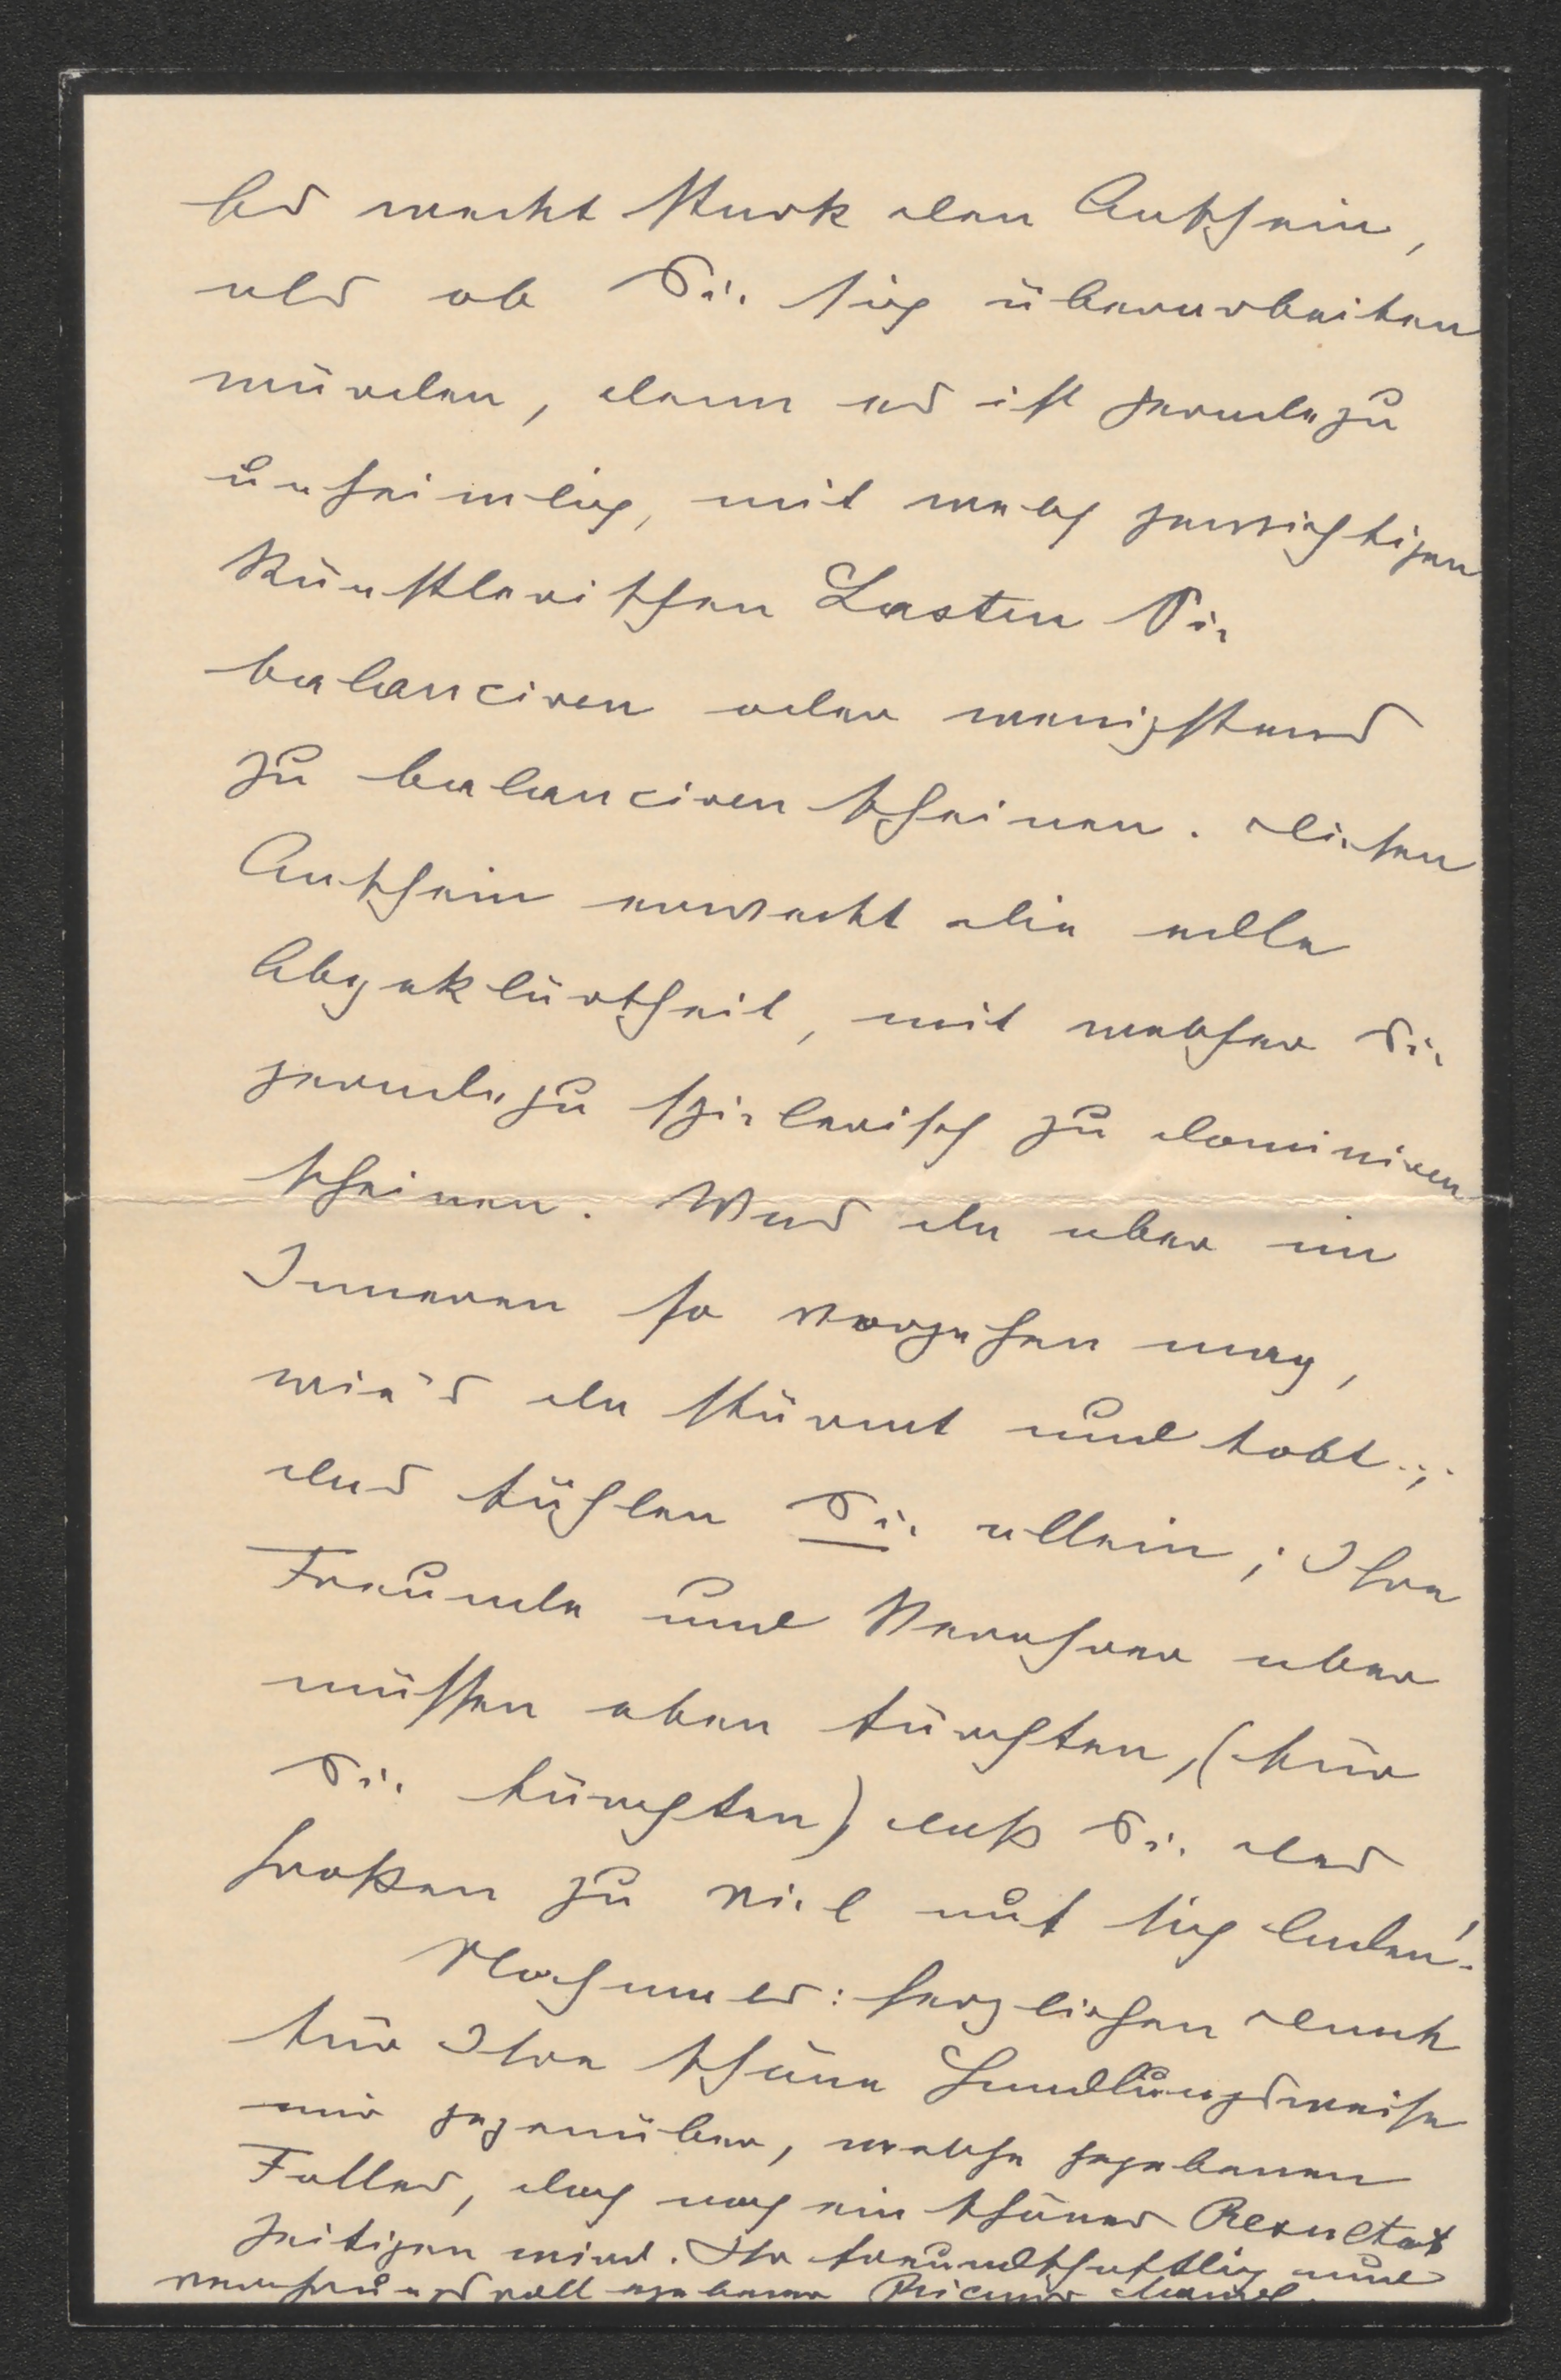 Es macht stark den Anschein,
als ob Sie sich überarbeiten
würden, denn es ist geradezu
unheimlich, mit welch gewichtigen
künstlerischen Lasten Sie
balanciren oder wenigstens
zu balanciren scheinen. Diesen
Anschein erweckt die edle
Abgeklärtheit, mit welcher Sie
geradezu spielerisch zu dominiren
scheinen. Was da aber im
Inneren so vorgehen mag,
wie's da stürmt und tobt..;
das fühlen Sie allein; Ihre
Freunde und Verehrer aber
müssen eben fürchten, (für
Sie fürchten) daß Sie des
Großen zu viel auf sich laden!
Nochmals: herzlichen Dank
für Ihre schöne Handlungsweise
mir gegenüber, welche gegebenen
Falles, doch noch ein schönes Resultat
zeitigen wird. Ihr freundschaftlich und
verehrungsvoll ergebener Richard Mandl.